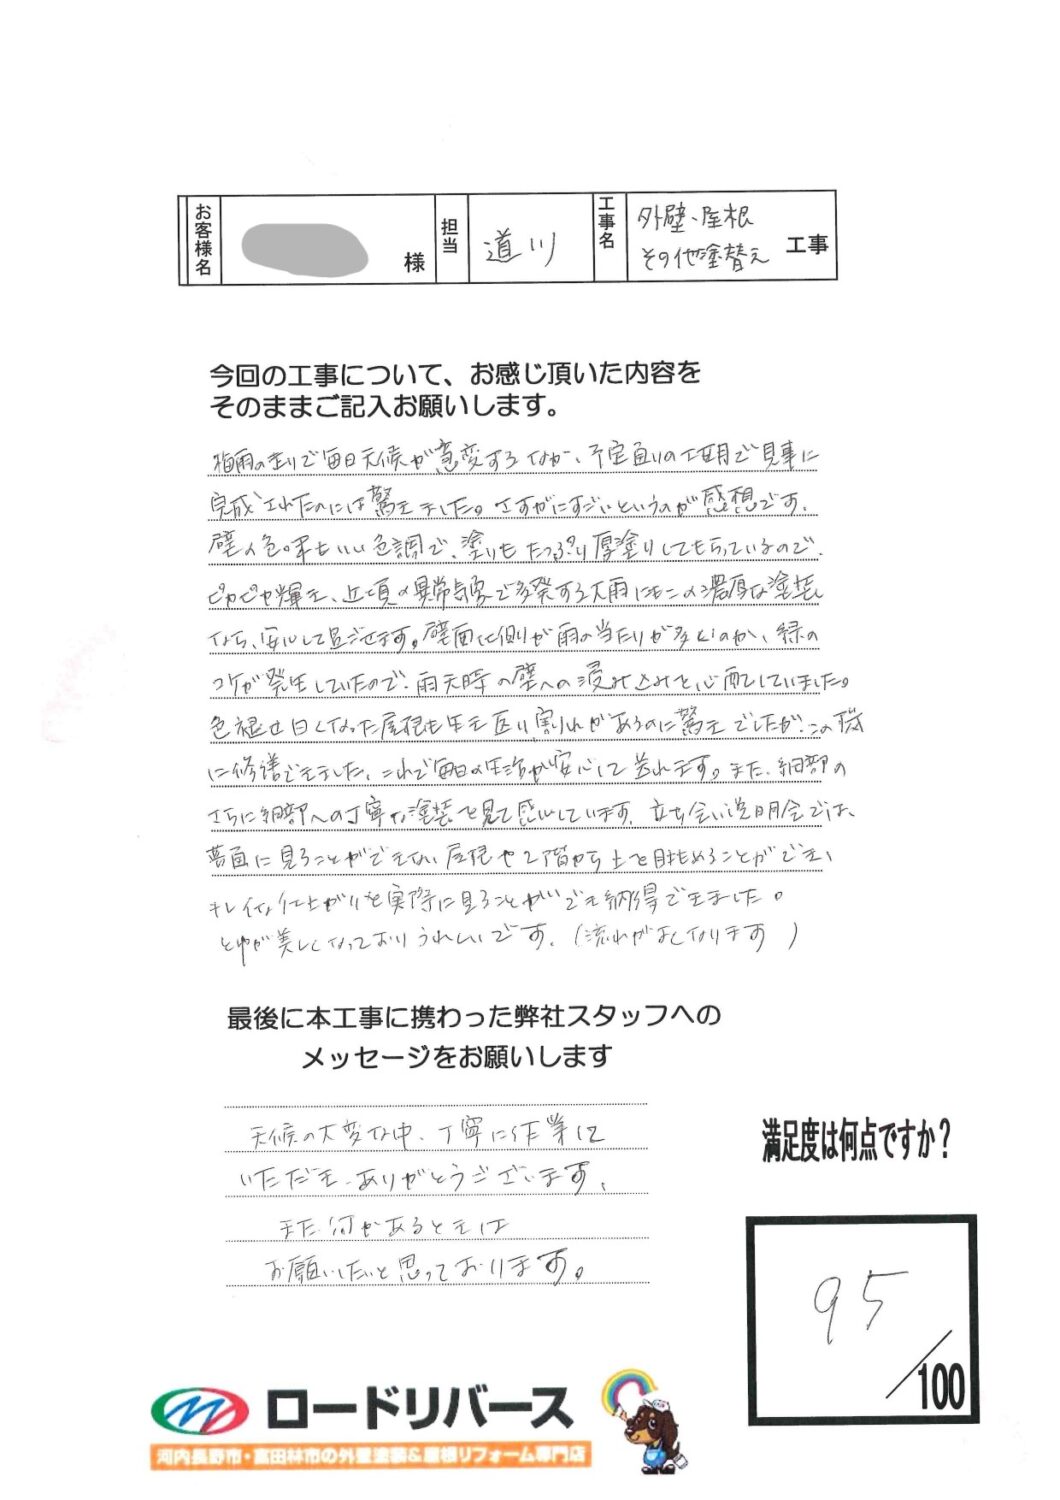 お客様名 様 担当 道川 工事名 外壁、屋根 その他塗替え 工事
今回の工事について、お感じ頂いた内容を
そのままご記入お願いします。
梅雨の走りで毎日天候が急変するなか、予定通りの工期で見事に
完成されたのには驚きました。さすがにすごいというのが感想です。
壁の色味もいい色調で、塗りもたっぷり厚塗りしてもらっているので、
ピカピカ輝き、近頃の異常気象で多発する大雨にもこの濃厚な塗装
なら、安心して過ごせます。壁面北側が雨の当たりが多いのか、緑の
コケが発生していたので、雨天時の壁への浸み込みを心配していました。
色褪せ白くなった屋根も 割れがあるのに驚きでしたが、この際
に修繕できました。これで毎日の生活が安心して送れます。また、細部の
さらに細部への丁寧な塗装を見て感心しています。立ち会い説明会では、
普通に見ることができない屋根や2階から上を眺めることができ、
キレイな仕上がりを実際に見ることができ納得できました。
とゆが美しくなっておりうれしいです。(流れがよくなります)
最後に本工事に携わった弊社スタッフへの
メッセージをお願いします
天候の大変な中、丁寧に作業して
いただき、ありがとうございます。
また、何かあるときは
お願いしたいと思っております。
満足度は何点ですか？
95/100
ロードリバース
河内長野市・富田林市の外壁塗装&屋根リフォーム専門店